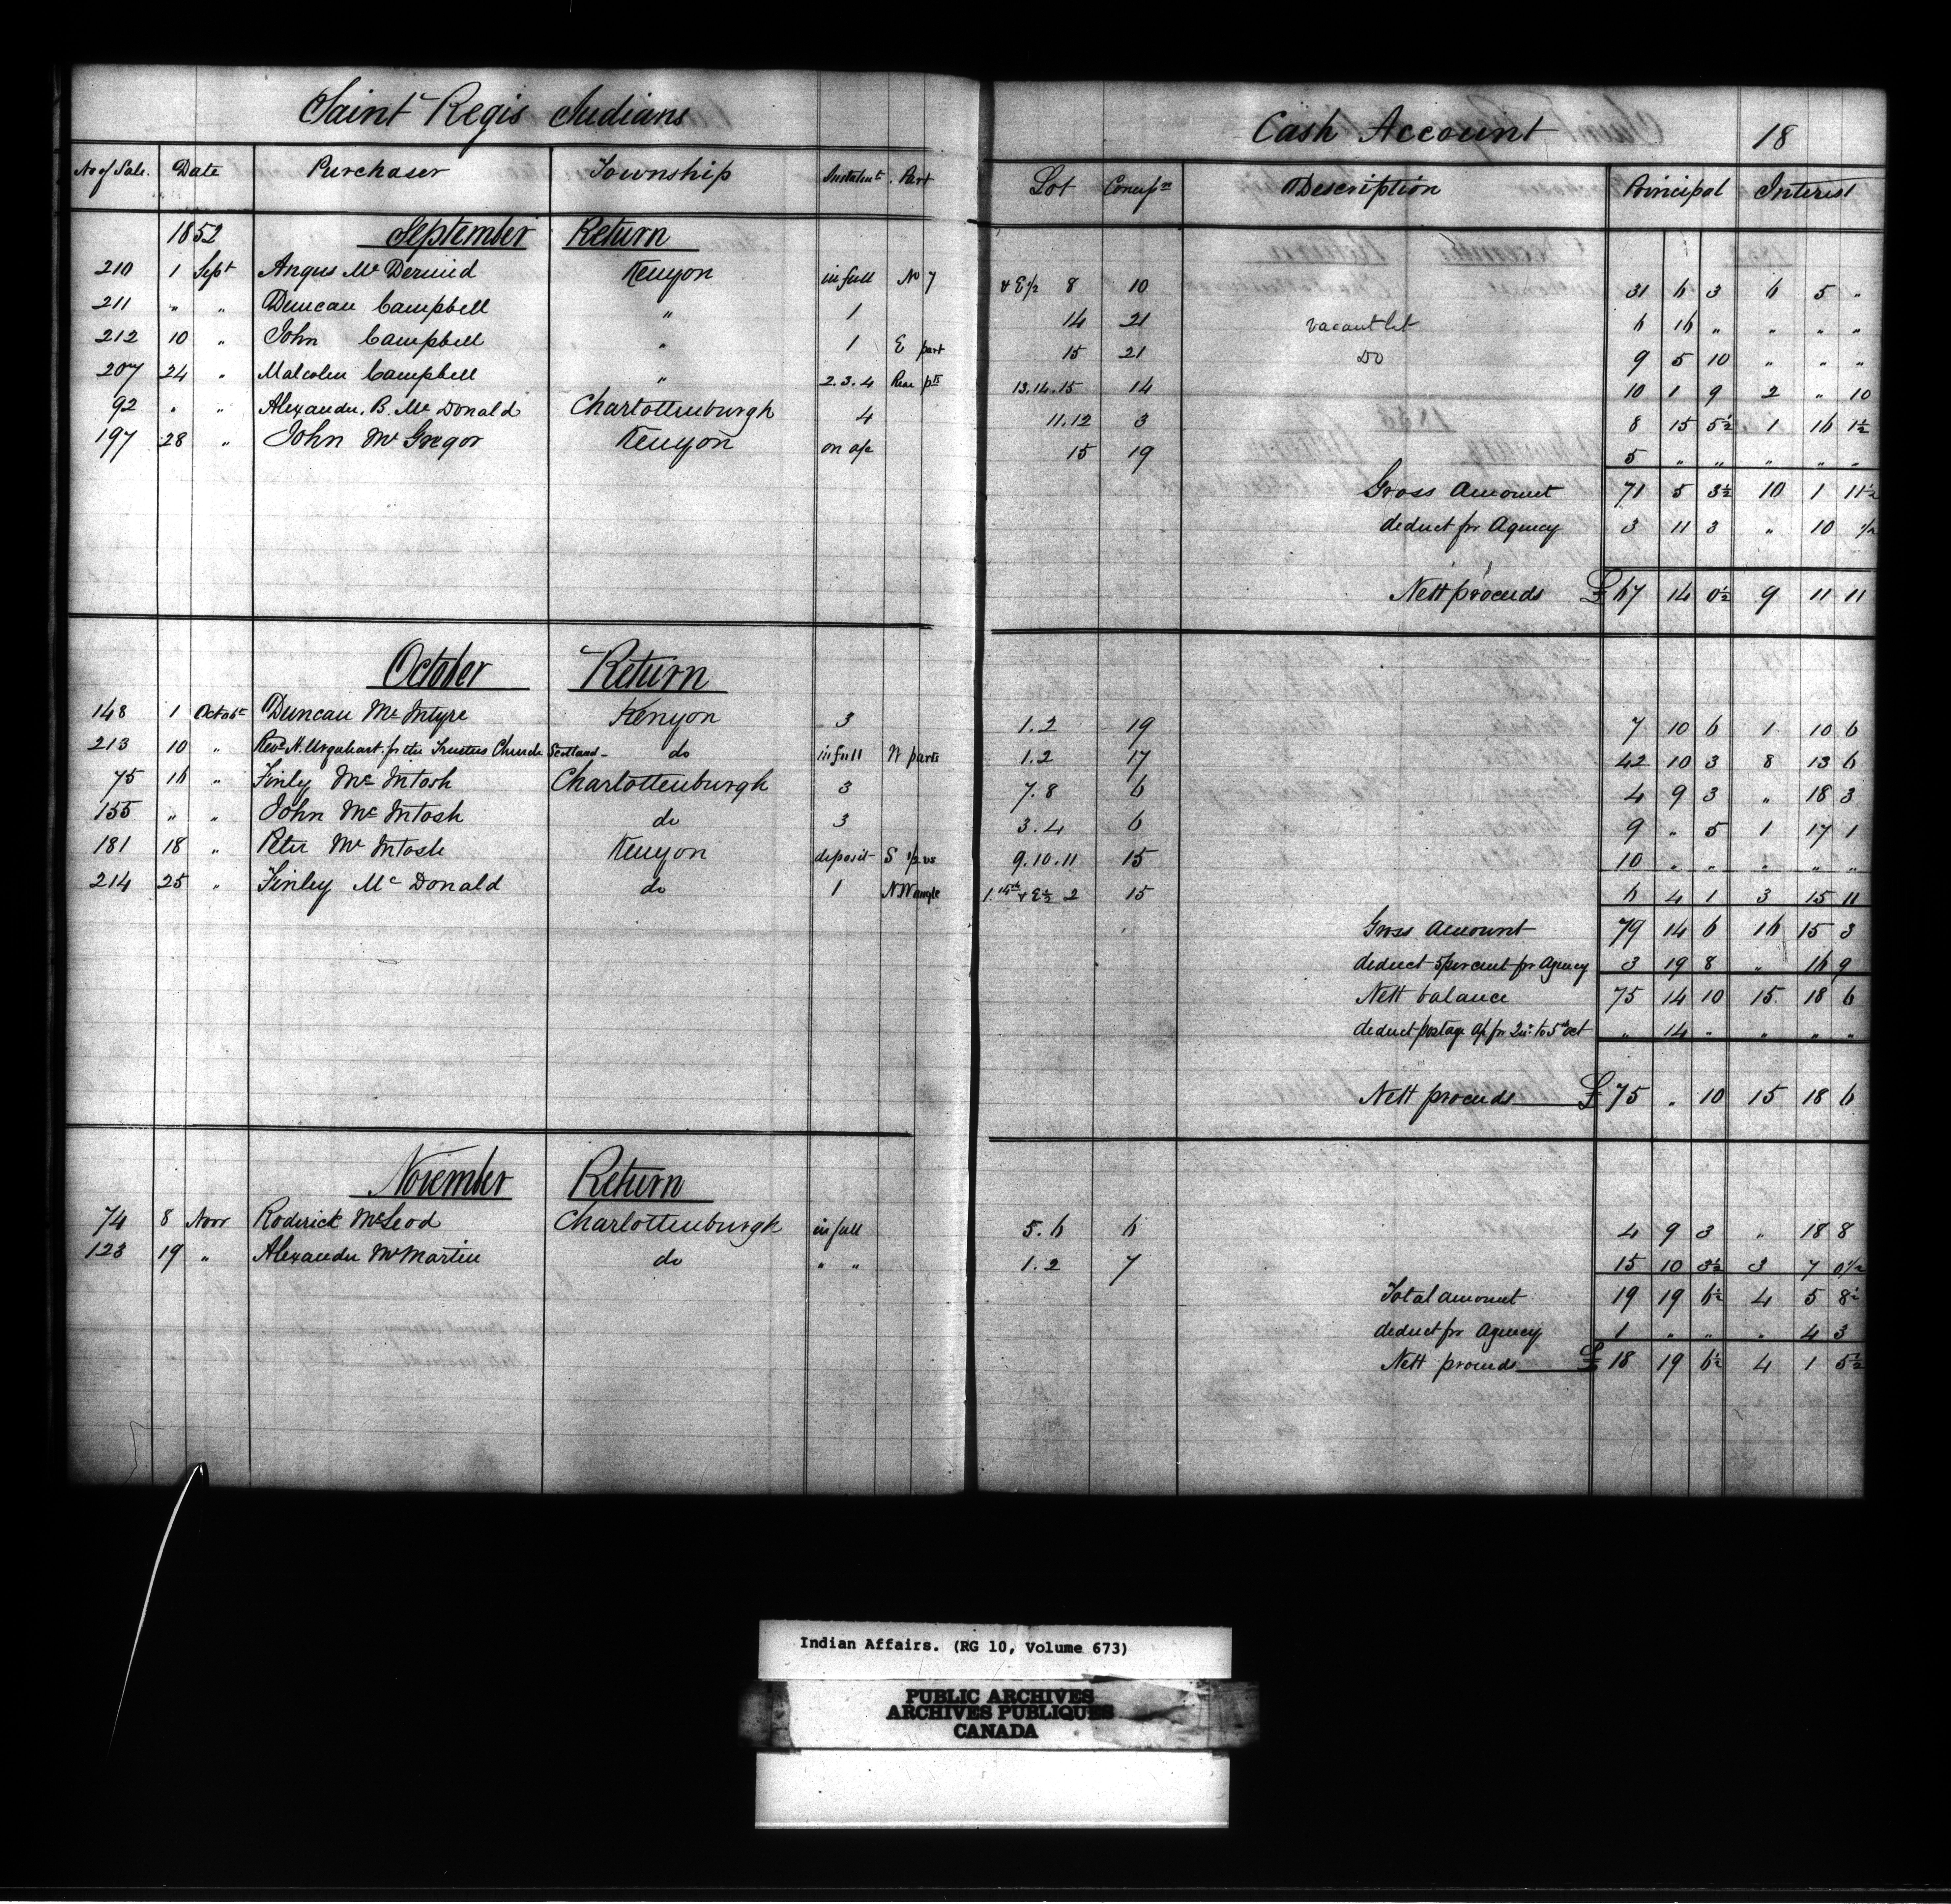 Saint Regis Indians Cash Account 18
No of Sale. Date Purchaser Township Instalmt. Part Lot Concessn Description Principal Interest
1852 September Return
210 1 Sept Angus Mc Dermid Kenyon in full No 7 & E 1/2 8 10 31 6 3 6 5 "
211 " " Duncan Campbell " 1 14 21 vacant lot 6 16 " " " "
212 10 " John Campbell " 1 E part 15 21 Do 9 5 10 " " "
207 24 " Malcolm Campbell " 2.3.4 Rear pts 13.14.15 14 10 1 9 2 " 10
92 " " Alexander. B. Mc Donald Charlottenburgh 4 11.12 3 8 15 5½ 1 16 1½
197 28 " John Mc Gregor Kenyon on a/c 15 19 5 " " " " "
Gross Amount 71 5 3½ 10 1 11½
deduct for Agency 3 11 3 " 10 ½
Nett proceeds £67 14 0½ 9 11 11
October Return
148 1 Octobr Duncan Mc Intyre Kenyon 3 1.2 19 7 10 6 1 10 6
213 10 " Revd N. Urquhart. for the Trustees Church Scotland do in full W parts 1.2 17 42 10 3 8 13 6
75 16 " Finly Mc Intosh Charlottenburgh 3 7.8 6 4 9 3 " 18 3
155 " " John Mc Intosh do 3 3.4 6 9 " 5 1 17 1
181 18 " Peter Mc Intosh Kenyon deposit S 1/2 vs 9.10.11 15 10 " " " " "
214 25 " Finley Mc Donald do 1 N W angle 1. & E½ 2 15 6 4 1 3 15 11
Gross amount 79 14 6 16 15 3
deduct 5 per cent for Agency 3 19 8 " 16 9
Nett balance 75 14 10 15 18 6
deduct postage a/c for to 5th Oct " 14 " " " "
Nett proceeds £75 " 10 15 18 6
November Return
74 8 Novr Roderick McLeod Charlottenburgh in full 5.6 6 4 9 3 " 18 8
123 19 " Alexander McMartin do " " 1.2 7 15 10 3½ 3 7 0½
Total amount 19 19 6½ 4 5 8½
deduct for Agency 1 " " " 4 3
Nett proceeds £18 19 6½ 4 1 5½
Indian Affairs. (RG 10, Volume 673)
PUBLIC ARCHIVES
ARCHIVES PUBLIQUES
CANADA